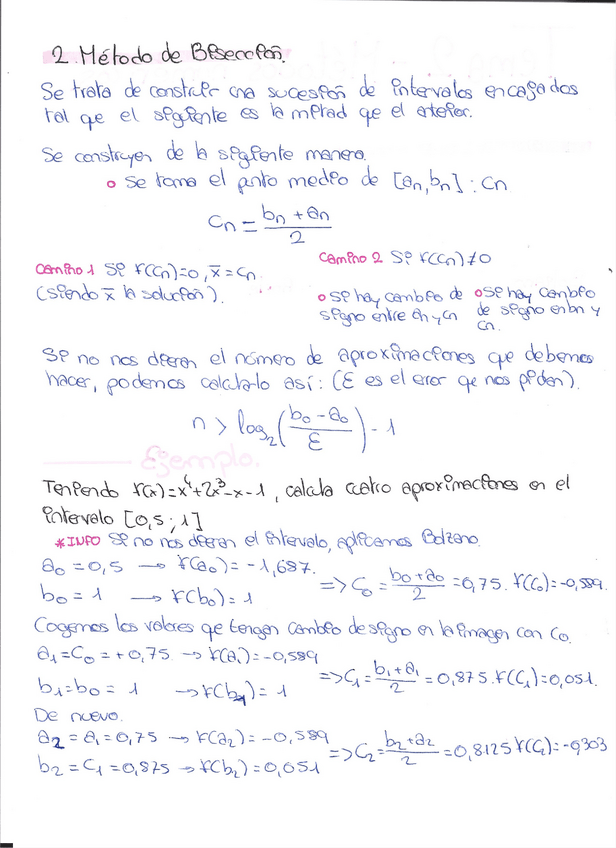 2. Método de Bisección.
Se trata de construir una sucesión de intervalos encajados
tal que el siguiente es la mitad que el anterior.
Se construyen de la siguiente manera.
o Se toma el punto medio de [an, bn] : Cn
Cn = (bn + an)/2
Camino 1 Si f(Cn)=0, x̄=Cn.
(siendo x̄ la solución).
Camino 2 Si f(Cn)≠0
o Si hay cambio de signo entre an y Cn
o Si hay cambio de signo en bn y Cn.
Si no nos dieran el número de aproximaciones que debemos
hacer, podemos calcularlo así: (ε es el error que nos piden).
n > log₂((b0 - a0)/ε) - 1
Ejemplo.
Teniendo f(x)=x⁴+2x³-x-1, calcula cuatro aproximaciones en el
intervalo [0,5 ; 1]
*INFO Si no nos dieran el intervalo, aplicamos Bolzano.
a0 = 0,5 → f(a0) = -1,687.
b0 = 1 → f(b0) = 1
=> C0 = (b0+a0)/2 = 0,75. f(C0) = -0,589.
Cogemos los valores que tengan cambio de signo en la imagen con C0.
a1 = C0 = +0,75 → f(a1) = -0,589
b1 = b0 = 1 → f(b1) = 1
=> C1 = (b1+a1)/2 = 0,875. f(C1) = 0,051.
De nuevo.
a2 = a1 = 0,75 → f(a2) = -0,589
b2 = C1 = 0,875 → f(b2) = 0,051
=> C2 = (b2+a2)/2 = 0,8125 f(C1) = -0,303